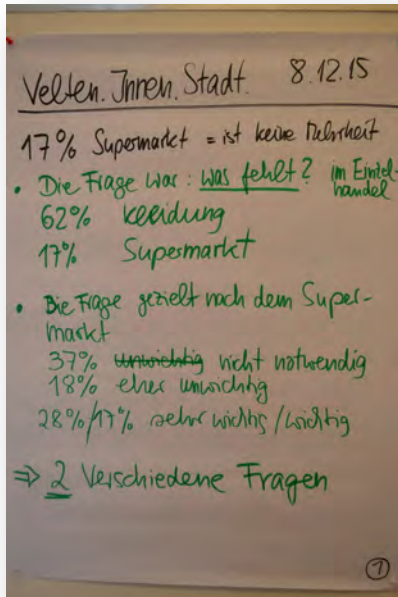 Velten.Innen.Stadt. 8.12.15
17% Supermarkt = ist keine Mehrheit
• Die Frage war: was fehlt? im Einzel-
handel
62% Kleidung
17% Supermarkt
• Die Frage gezielt nach dem Super-
markt
37% unwichtig nicht notwendig
18% eher unwichtig
28%/17% sehr wichtig/wichtig
⇒ 2 Verschiedene Fragen
1